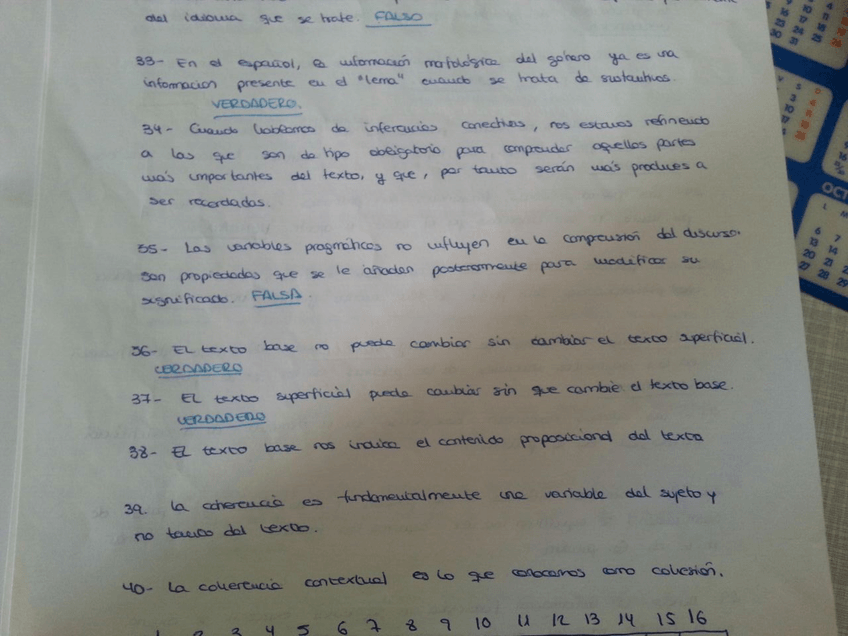 del idioma que se trate. FALSO
33- En el español, la información morfológica del género ya es una
información presente en el "lema" cuando se trata de sustantivos.
VERDADERO.
34- Cuando hablamos de inferencias conectivas, nos estamos refiriendo
a las que son de tipo obligatorio para comprender aquellas partes
más importantes del texto, y que, por tanto serán más produces a
ser recordadas.
35- Las variables pragmáticas no influyen en la comprensión del discurso.
Son propiedades que se le añaden posteriormente para modificar su
significado. FALSA.
36- EL texto base no puede cambiar sin cambiar el texto superficial.
VERDADERO
37- EL texto superficial puede cambiar sin que cambie el texto base.
VERDADERO
38- EL texto base nos indica el contenido proposicional del texto
39. La coherencia es fundamentalmente una variable del sujeto y
no tanto del texto.
40- La coherencia contextual es lo que conocemos como cohesión.
1 2 3 4 5 6 7 8 9 10 11 12 13 14 15 16
OCT
L M
6 7
13 14
20 21
27 28 29